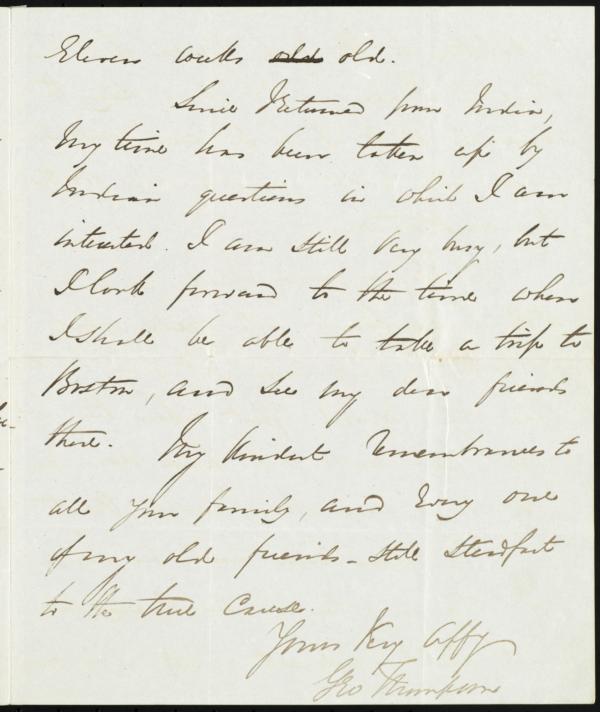 Eleven weeks old old.
Since I returned from India,
my time has been taken up by
Indian questions in which I am
interested. I am still very busy, but
I look forward to the time when
I shall be able to take a trip to
Boston, and see my dear friends
there. My kindest remembrances to
all your family, and every one
of my old friends - still steadfast
to the true cause.
Yours Very Affy
Geo Thompson